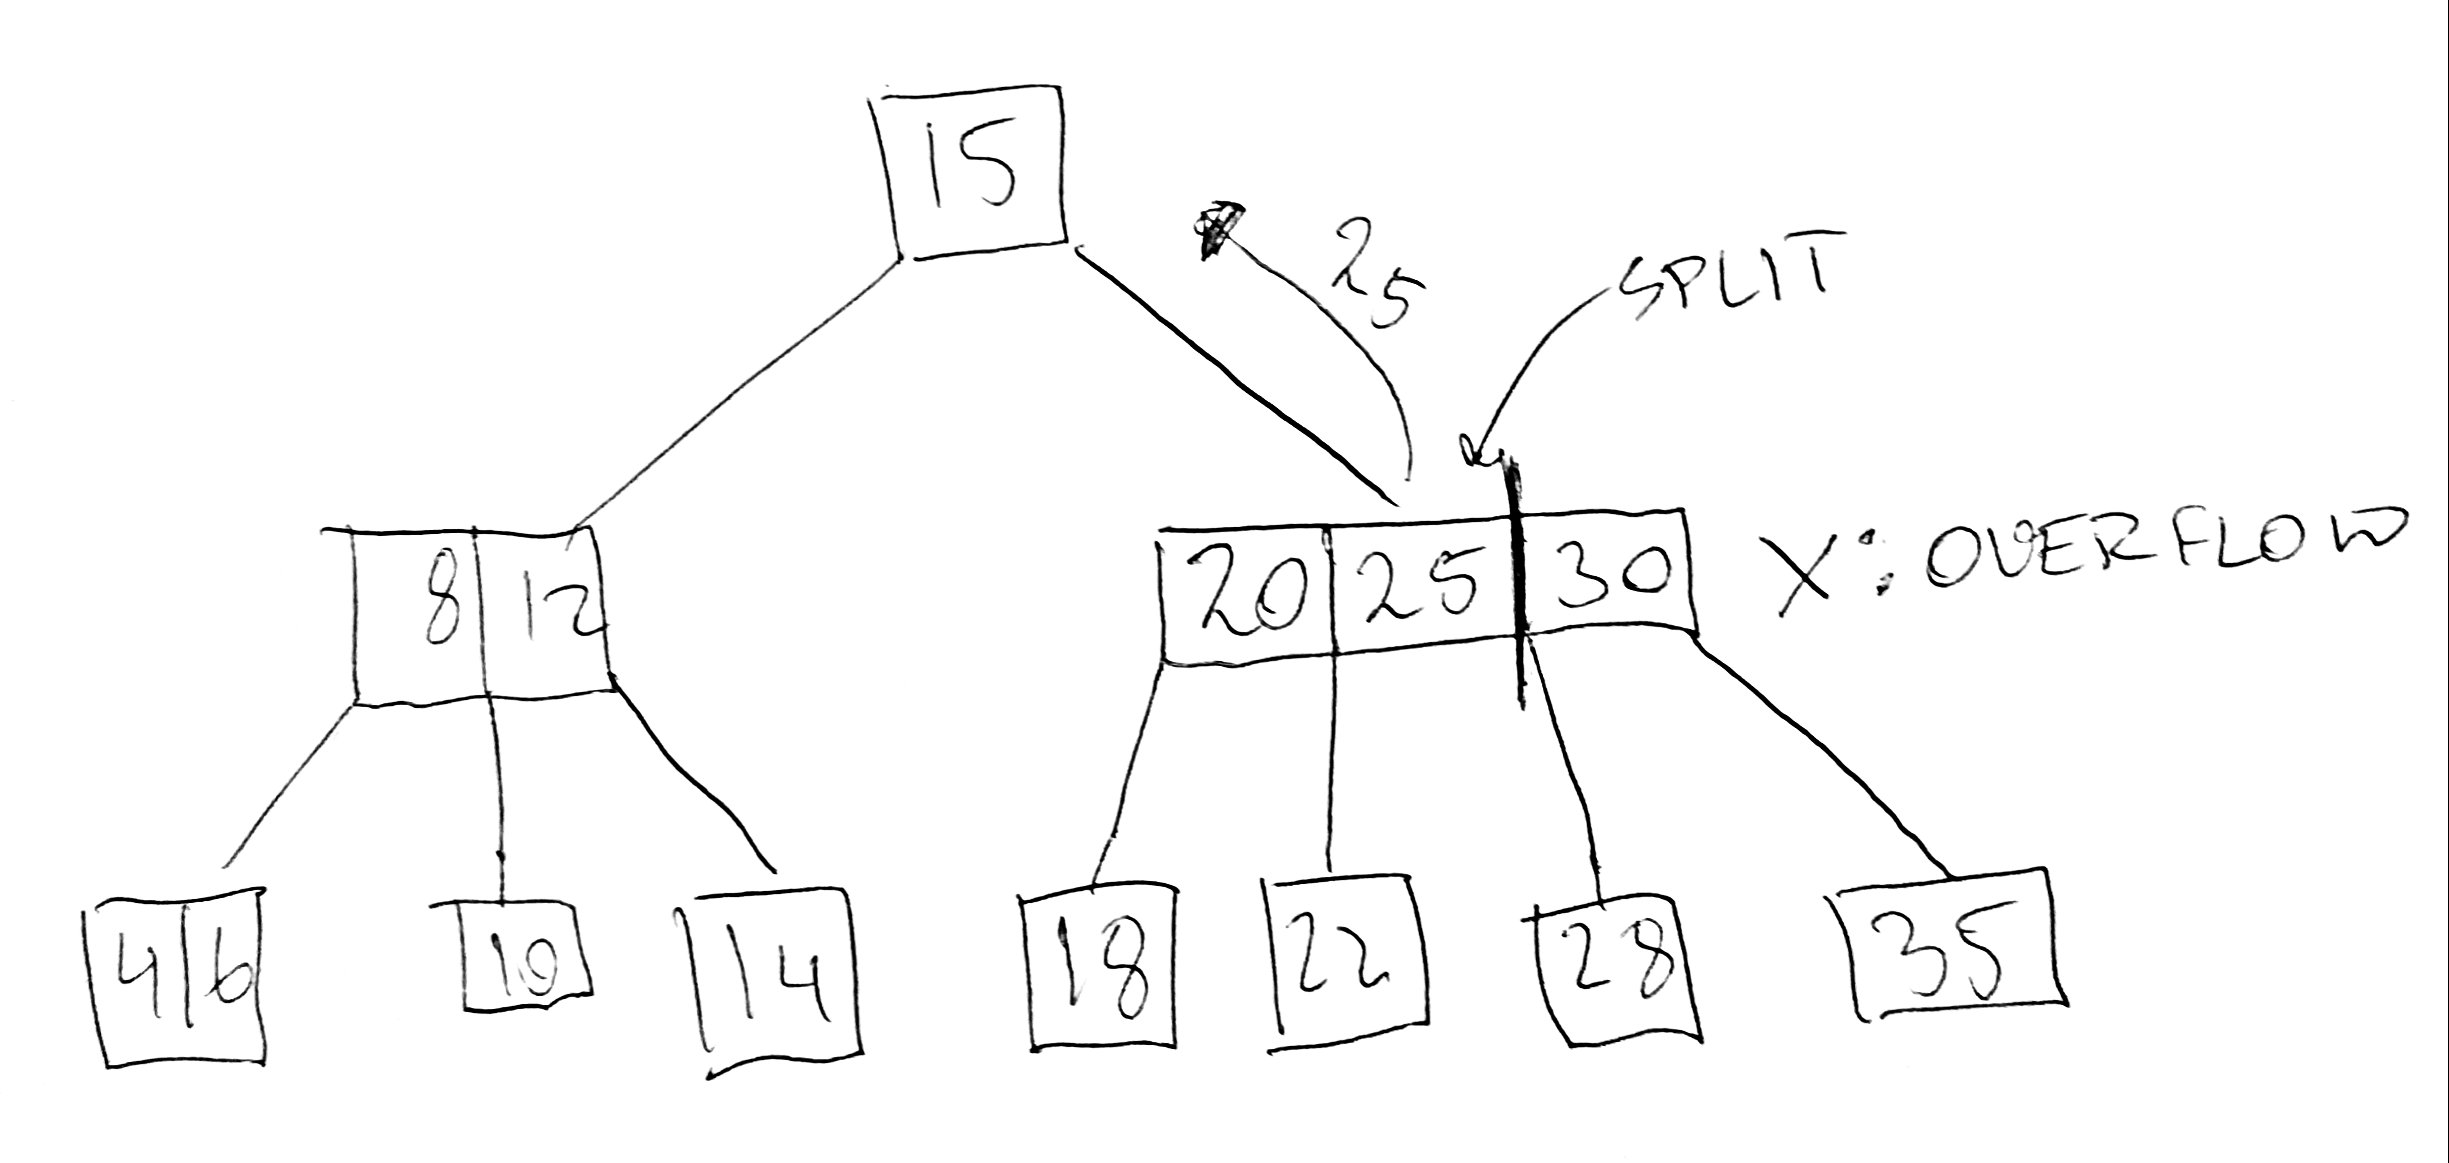 15
25
SPLIT
8 12
20 25 30
X: OVERFLOW
4 6
10
14
18
22
28
35